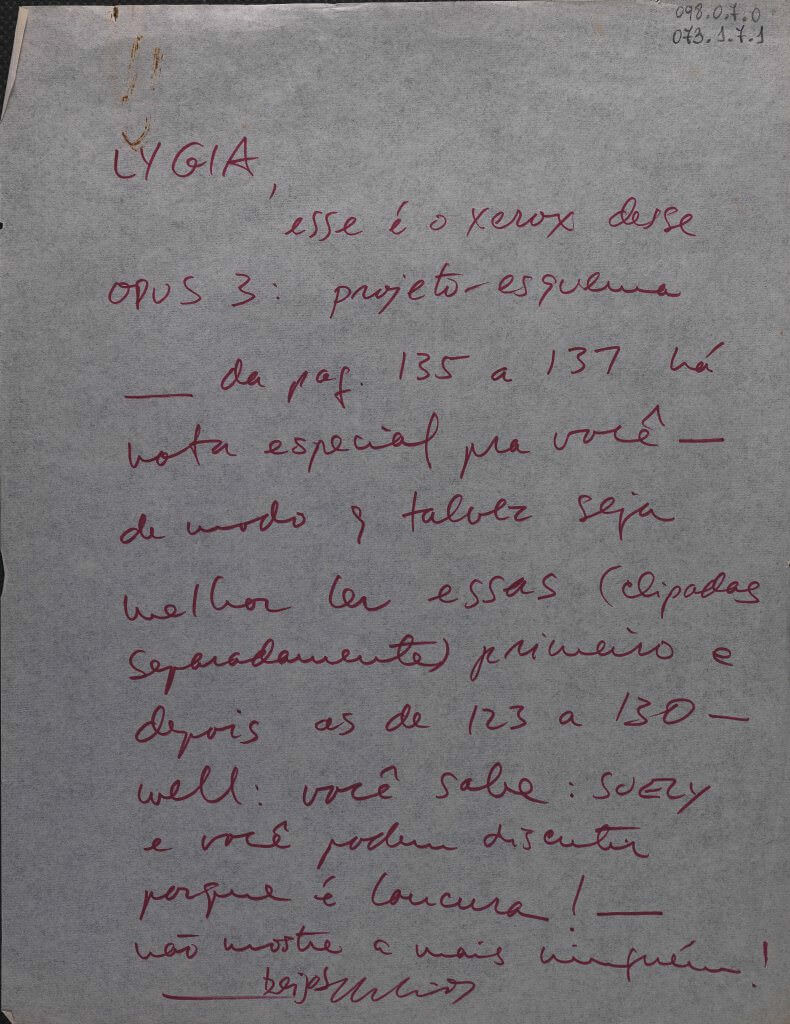 098.0.7.0
073.1.7.1
LYGIA,
esse é o xerox desse
OPUS 3: projeto-esquema
— da pag. 135 a 137 há
nota especial pra você —
de modo q talvez seja
melhor ler essas (clipadas
separadamente) primeiro e
depois as de 123 a 130 —
well: você sabe: SUELY
e você podem discutir
porque é loucura! —
não mostre a mais ninguém!
— beijos